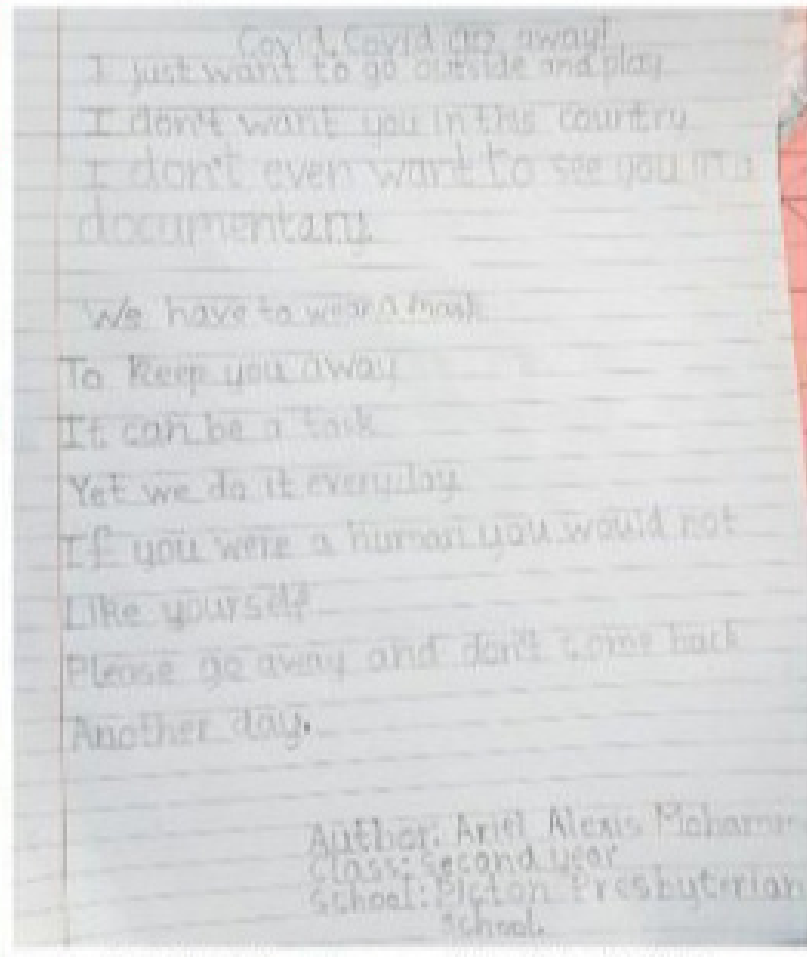 Covid, Covid go away!
I just want to go outside and play
I don't want you in this country
I don't even want to see you in a
documentary
We have to wear a mask
To keep you away
It can be a task
Yet we do it everyday
If you were a human you would not
Like yourself
Please go away and don't come back
Another day.
Author: Ariel Alexis Mohamm
Class: Second year
School: Picton Presbyterian
School.